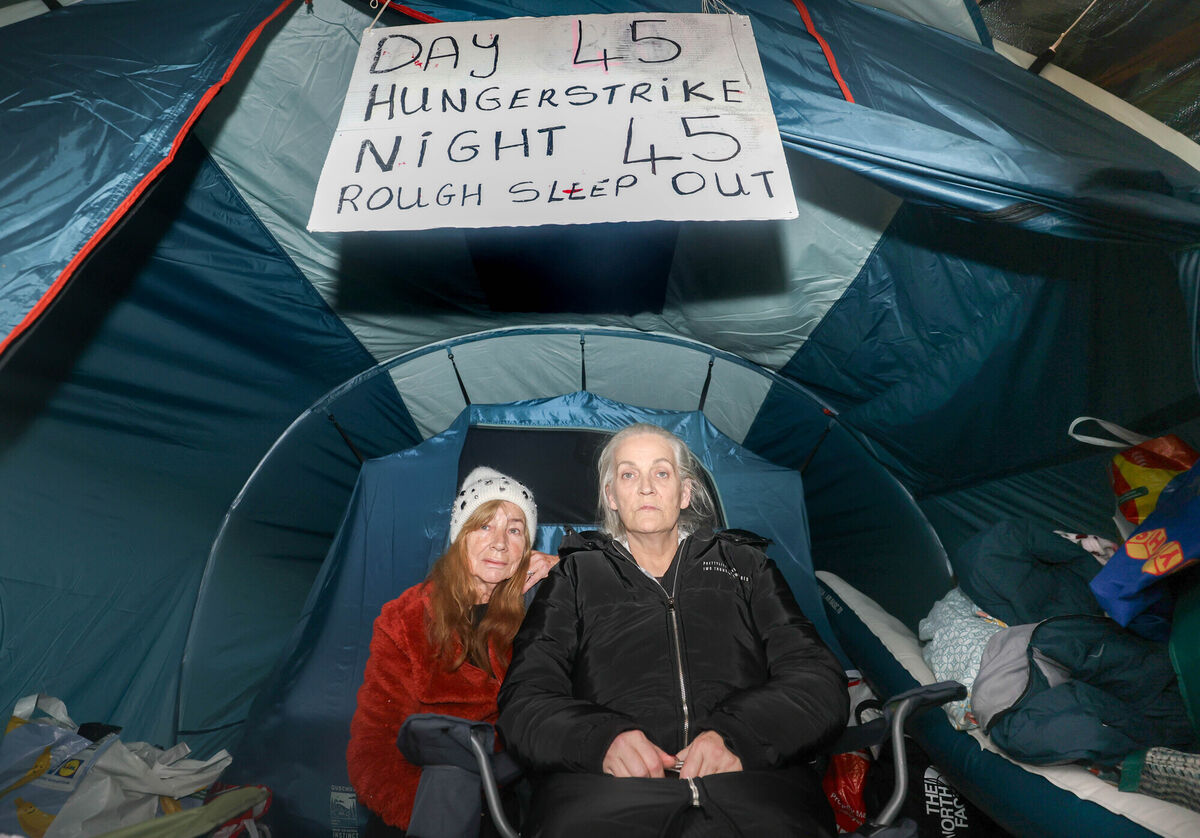 DAY 45
HUNGERSTRIKE
NIGHT 45
ROUGH SLEEP OUT
LIDL
THE
NORTH
FACE